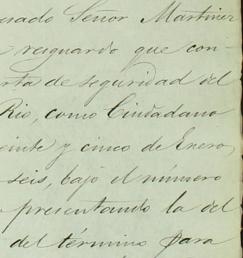 esado Señor Martinez
resguardo que con-
rta de seguridad del
Rio, como Ciudadano
einte y cinco de Enero,
seis, bajo el número
presentando la del
del término para